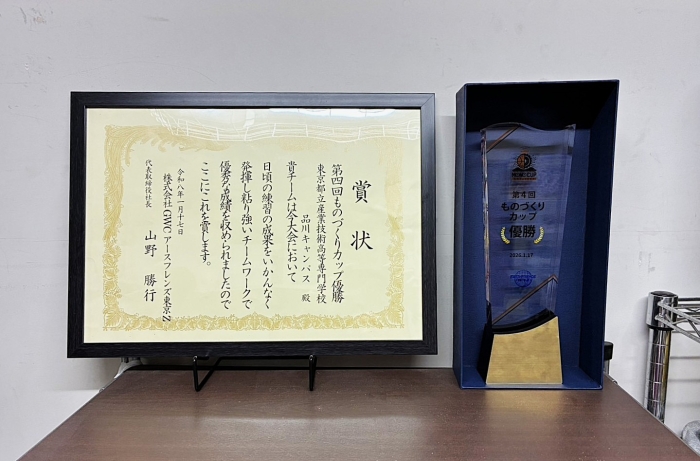 賞状
第四回ものづくりカップ優勝
東京都立産業技術高等専門学校
品川キャンパス 殿
貴チームは今大会において
日頃の練習の成果をいかんなく
発揮し粘り強いチームワークで
優秀な成績を収められましたので
ここにこれを賞します。
令和八年一月十七日
株式会社GWCアースフレンズ東京Z
代表取締役社長
山野 勝行
第4回
ものづくり
カップ
優勝
2026.1.17